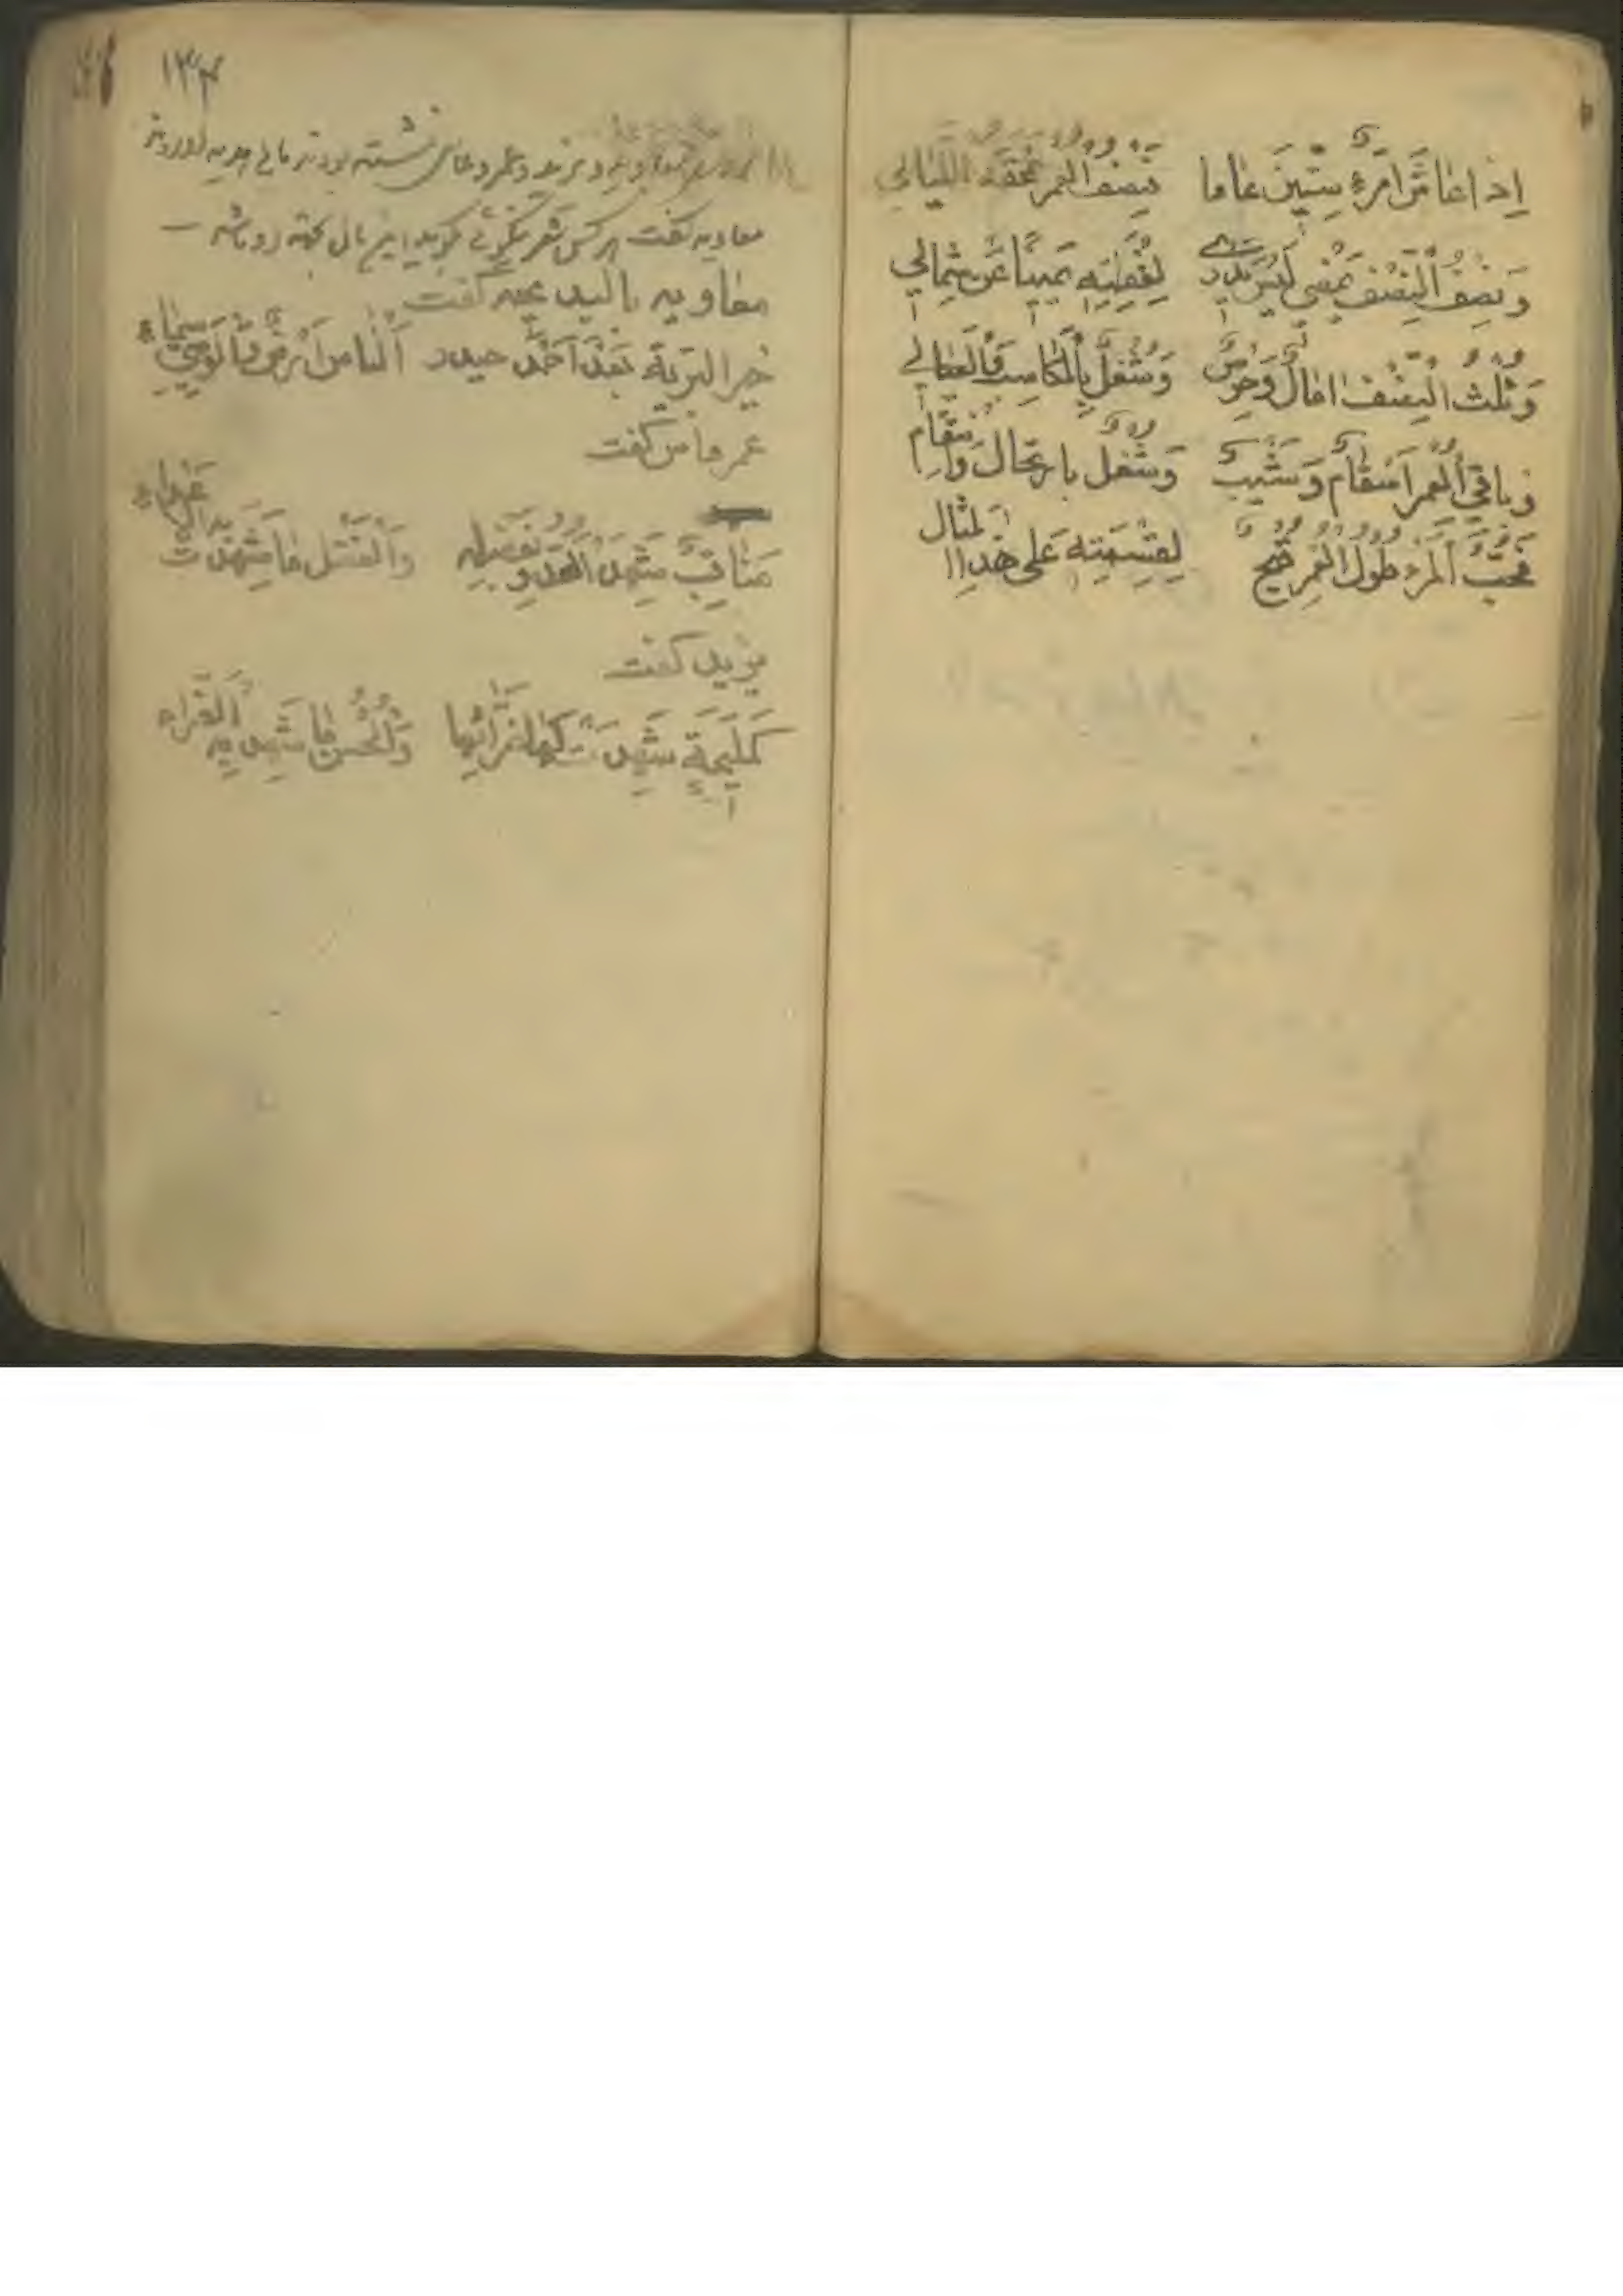 إِذا عاشَ امْرَءٌ سِتِّينَ عاما فَنِصْفُ الْعُمْرِ تَمْحَقُهُ اللَّيالي
وَنِصْفُ النِّصْفِ يَمْضي لَيْسَ يَدْري لِغَفْلَتِهِ يَميناً عَنْ شِمالي
وَثُلْثُ النِّصْفِ اٰمالٌ وَحِرْصٌ وَشُغْلٌ بِالْمَكاسِبِ وَالْعيالي
وَباقي الْعُمْرِ اَسْقامٌ وَشَيْبٌ وَشُغْلٌ بِارْتِحالٍ وَانْتِقالِ
فَحُبُّ الْمَرْءِ طُولَ الْعُمْرِ قُبْحٌ لِقِسْمَتِهِ عَلى هذَا الْمِثالِ
۱۳۴
معاویه و یزید و عمرو عاص نشسته بودند مالی هدیه آوردند
معاویه گفت هر کس شعر نیکوئی گوید این مال
معاویه بالبدیهه گفت
خَيْرُ الْبَرِيَّةِ بَعْدَ اَحْمَدَ حيدر اَلنّاسُ اَرْضٌ وَالْوَصِيُّ سَماءٌ
عمر عاص گفت
مَناقِبُ شَهِدَ الْعَدُوُّ بِفَضْلِهِ وَالْفَضْلُ ما شَهِدَتْ بِهِ
یزید گفت
كَمَليحَةٍ شَهِدَتْ لَها ضَرّاتُها وَالْحُسْنُ ما شَهِدَ بِهِ الضَّرّاءُ